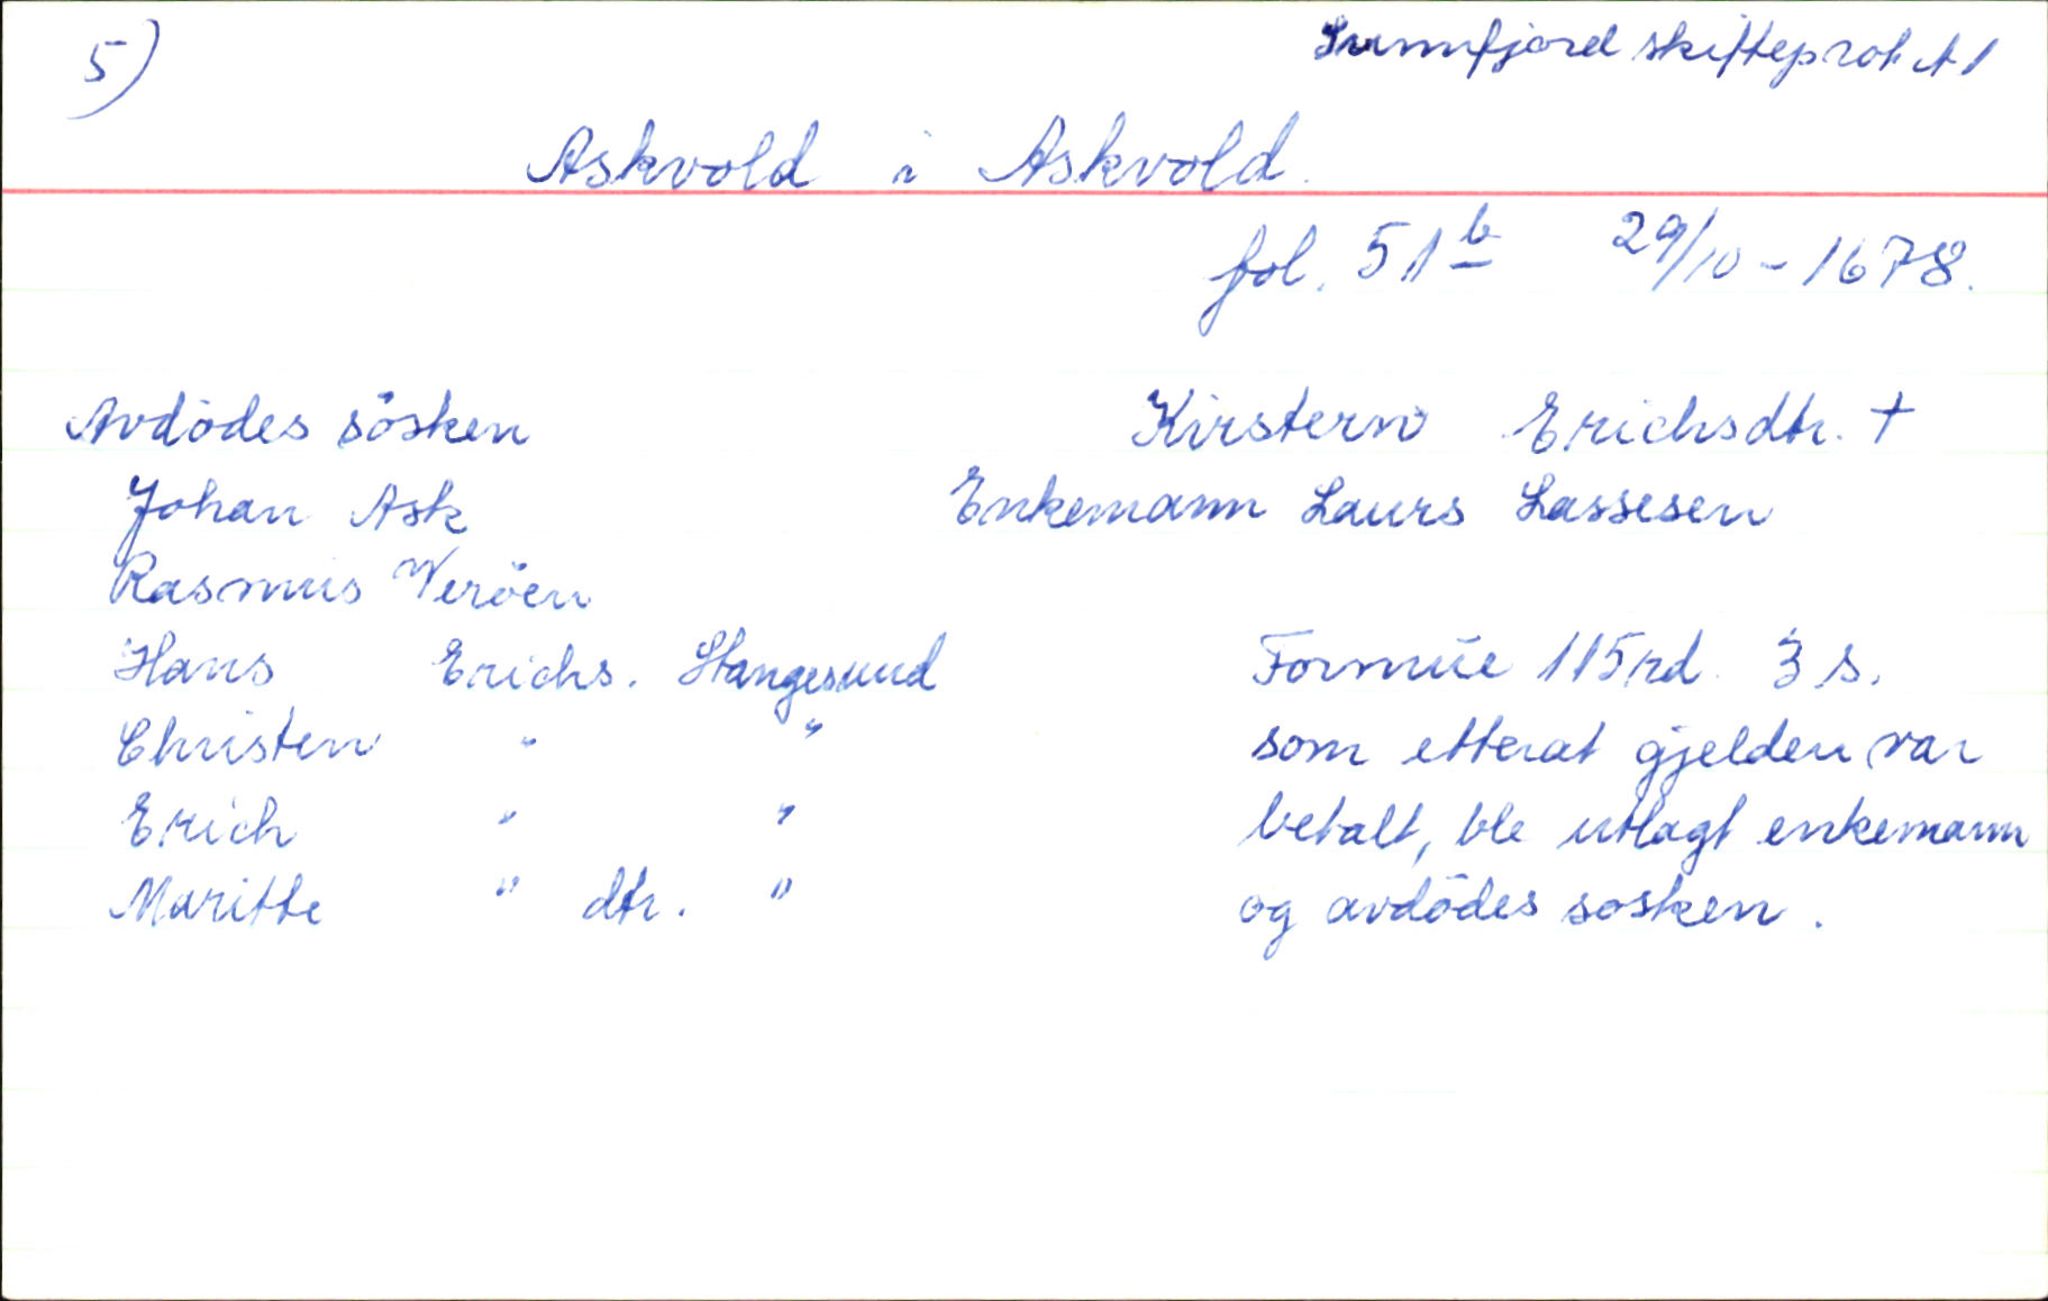 5)
Sunnfjord skifteprot A 1
Askvold i Askvold.
fol. 51 b 29/10 - 1678.
Avdödes sösken
Kirstern Erichsdtr. +
Johan Ask
Enkemann Laurs Lassesen
Rasmus Veröen
Hans Erichs. Stangesund
Formue 115 rd. 3 s.
Christen " "
som etterat gjelden var
Erich " "
betalt, ble utlagt enkemann
Maritte " dtr. "
og avdödes sosken.